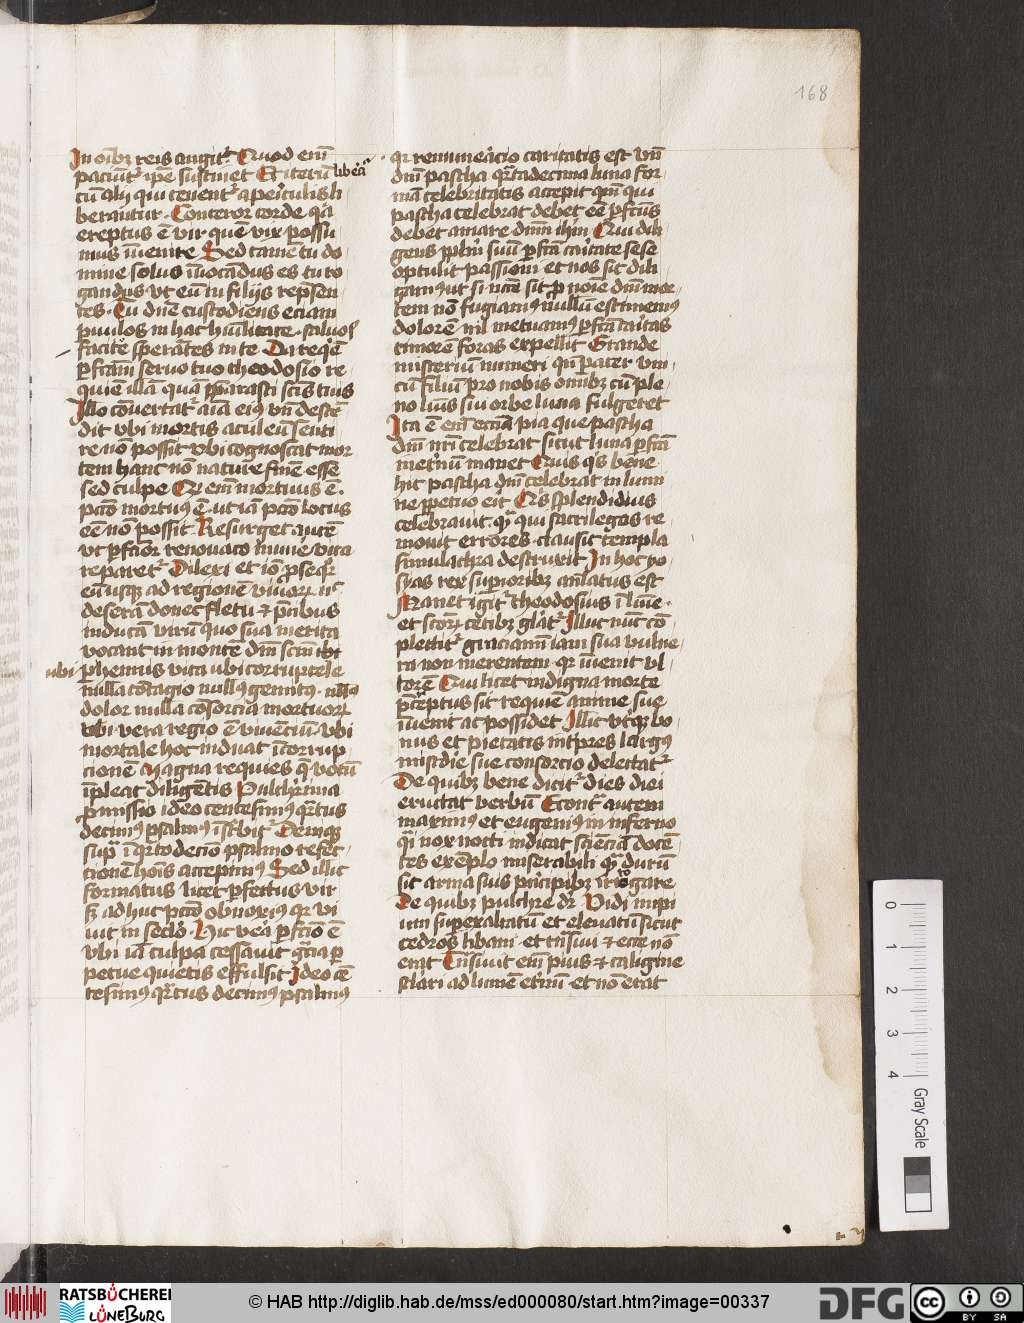 168
In oībꝫ reis angit᷑ Quod em̄
paciunt᷑ ip̄e sustinet Et iterū
cū alij qui tenent᷑ a periculis li
berantur · Conteror corde qꝛ
ereptus ē vir quē vix possu
mus īuenire Sed tamē tu do
mine solus īuocādus es tu ro
gandus vt eū in filijs repsen
tes · Cū dn̄e custodiens eciam
puulos in hac hūilitate · saluos
facite sperātes in te Da reqē
pfctām seruo tuo theodosio re
quiē illā quā pparasti scīs tuis
Illo cōuertat᷑ aīa eiꝰ vn̄ descē
dit vbi mortis aculeū senti
re nō possit vbi cognoscat mor
tem hanc nō nature finē esse
sed culpe Qꝛ em̄ mortuus ē ·
pctō mortuꝰ ē · ut iā pctō locus
eē nō possit · Resurget autē
vt pfectior renouato mūe vita
reparet᷑ Dilexi et iō pseqꝛ
eū usqꝫ ad regionē viuoꝝ n̄
deserā donec fletu ⁊ pcibus
inducā virū quo sua merita
vocant in montē dn̄i scm̄ ibi
ubi phennis vita ubi corruptele
nulla cōtagio nullꝰ gemitꝰ · nullꝰ
dolor nulla cōsorcia mortuoꝝ
vbi vera regio ē viuenciū vbi
mortale hoc induat īcorrup
cionē Magna requies q̄ votū
īpleat diligētis Pulcherrima
pmissio ideo centesimꝰ qꝛtus
decimꝰ psalmꝰ īscbit᷑ Deniqꝫ
supꝛ ī qꝛto decīo psalmo refec
tionē hoīs accepimꝰ Sed illic
formatus licet pfectus vir
sꝫ adhuc pctō obnoxiꝰ qꝛ vi
uit in sectō · Hic vea pfctio ē
vbi iā culpa cessauit gcīa p
petue quietis effulsit Ideo cē
tesimꝰ qꝛtus decimꝰ psalmꝰ
qꝛ remuneācio caritatis est vn̄
dn̄i pascha qꝛtadecima luna for
mā celebritatis accepit qm̄ qui
pascha celebrat debet eē pfctūs
debet amare dn̄m ihm̄ Qui dili
gens pplm̄ suū pfctā caritate sese
optulit passioni et nos sic dili
gamꝰ ut si nctē sit p noīe dn̄i mor
tem nō fugiamꝰ nullū estimemꝰ
dolorē nil metuamꝰ pfctā caritas
timorē foras expellit Grande
misteriū numeri qn̄ pater vni
cū filiū pro nobis omībꝫ cū ple
no luīs sui orbe luna fulgeret
Ita ē em̄ eccīa pia que pascha
dn̄i nrī celebrat sicut luna pfctā
ineternū manet Quis qs bene
hic pascha dn̄i celebrat in lumi
ne ppetuo eit Qs splendidius
celebrauit qꝫ qui sacrilegas re
mouit errores · clausit templa
simulachra destruxit In hoc yo
syas rex supioribꝫ antelatus est
Manet igit᷑ theodosius ī luīe ·
et scōꝝ cetibꝫ gloāt᷑ Illic nūc cō
plectit᷑ gracianū iam sua vulne
ra non merentem · qꝛ īuenit vl
torē Qui licet indigna morte
pceptus sit requiē anime sue
īuenit ac possidet Illic vtqꝫ bo
nus et pietatis intpres largꝰ
mīscdie sue consorcio delectat᷑
De quibꝫ bene dicit᷑ dies diei
eructat verbū Econt autem
maximꝰ et eugeniꝰ in inferno
qꝛi nox nocti indicat scienciā docē
tes exēplo miserabili qꝫ durū
sit arma suis pncipibꝫ irrogare
De quibꝫ pulchre dꝛ Vidi impi
um superexaltatū et eleuatū sicut
cedros libani · et tn̄siui ⁊ ecce nō
erat Tn̄siuit em̄ pius ⁊ caligine
sclari ad lumē eternū · et nō erat
0
1
2
3
4
Gray Scale
RATSBÜCHEREI
LÜNEBURG
© HAB http://diglib.hab.de/mss/ed000080/start.htm?image=00337
DFG
CC BY SA